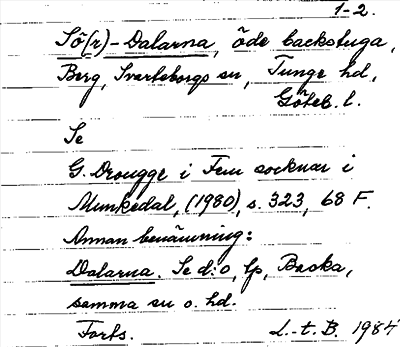 1-2.
Sö(r)-Dalarna, öde backstuga,
Berg, Svarteborgs sn, Tunge hd,
Göteb. l.
Se
G. Drougge i Fem socknar i
Munkedal, (1980), s. 323, 68 F.
Annan benämning:
Dalarna. Se d:o, lp, Backa,
samma sn o. hd.
Forts. L.-t. B. 1984